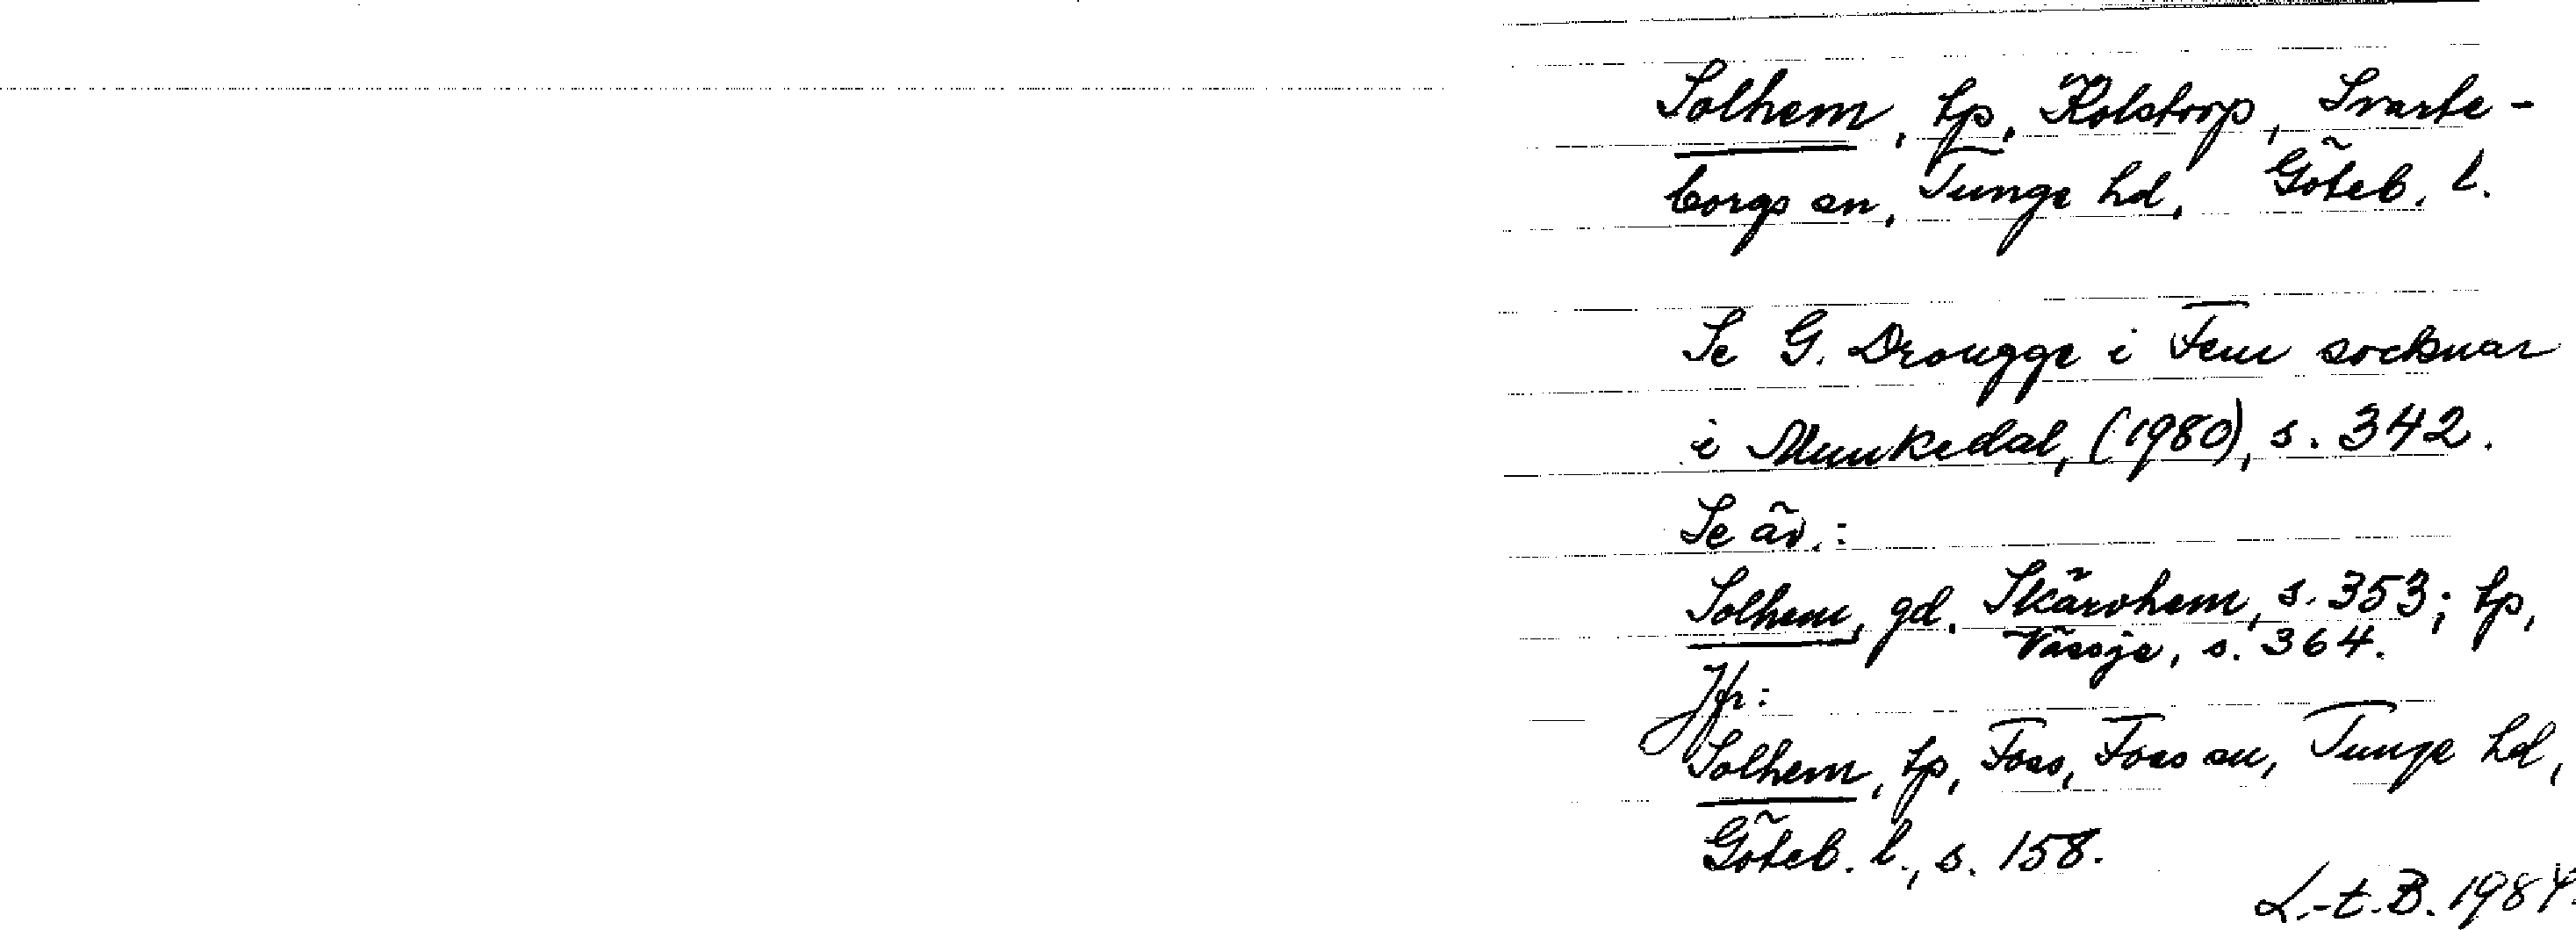 Solhem, tp, Kolstorp, Svarte-
borgs sn, Tunge hd, Göteb. l.
Se G. Drougge i Fem socknar
i Munkedal, (1980), s. 342.
Se äv.:
Solhem, gd, Skärvhem, s. 353; tp,
Vässje, s. 364.
Jfr:
Solhem, tp, Foss, Foss sn, Tunge hd,
Göteb. l., s. 158.
L.-t. B. 1984.